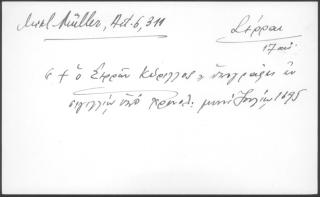 Mikl-Müller, Act. 6, 311
Σέρραι
17 αι.
" † ὁ Σερρῶν Κύριλλος " ὑπογράφει ἐν
σιγιλλίῳ ὑπὸ χρονολ: μηνὶ Ἰουλίῳ 1695